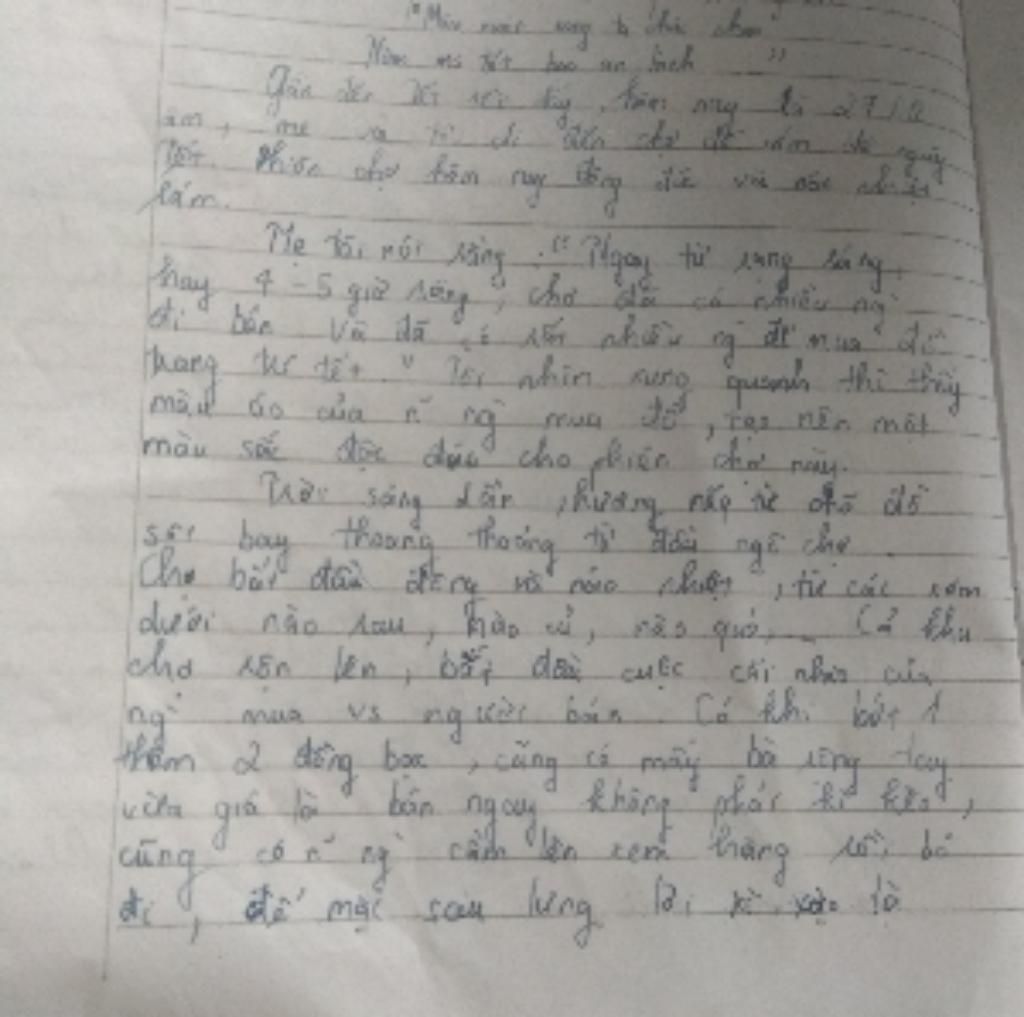 "Mùa xuân
Năm mới tết
Gần đến tết rồi hôm nay là 27/12
âm, mẹ và tôi đi đến chợ để sắm đồ ngày
Tết. Phiên chợ hôm nay đông đúc và náo nhiệt
lắm.
Mẹ tôi nói rằng : " Ngay từ rạng sáng,
hay 4 - 5 giờ sáng, chợ đã có nhiều ng
đi bán và đã có rất nhiều ng đi mua đồ
trang trí tết. " Tôi nhìn xung quanh thì thấy
màu áo của n~ ng mua đồ, tạo nên một
màu sắc độc đáo cho phiên chợ này.
Trời sáng dần, hương nếp từ chõ đồ
xôi bay thoang thoảng từ đầu ngõ chợ.
Chợ bắt đầu đông và náo nhiệt, từ các xóm
dưới nào rau, nào củ, nào quả,... Cả khu
chợ rộn lên, bắt đầu cuộc cãi nhau của
ng` mua vs người bán. Có khi bớt 1
thêm 2 đồng bạc, cũng có mấy bà rộng tay
vừa giá là bán ngay không phải kì kèo,
cũng có n~ ng` cầm lên xem hàng rồi bỏ
đi, để mặc sau lưng lời xì xào là